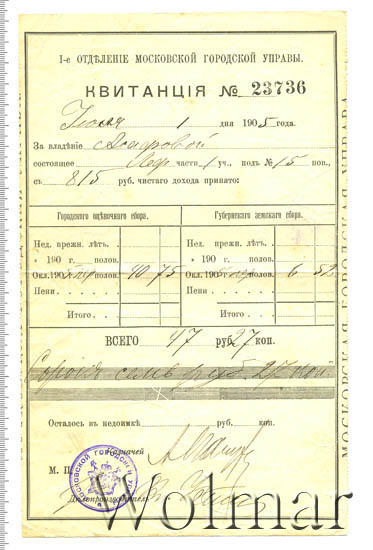 I-е ОТДѢЛЕНІЕ МОСКОВСКОЙ ГОРОДСКОЙ УПРАВЫ.
КВИТАНЦІЯ № 23736
Іюля 1 дня 1905 года.
За владѣніе
состоящее части 1 уч., подъ № 15 пов.,
съ 815 руб. чистаго дохода принято:
Городского оцѣночнаго сбора. Губернскаго земскаго сбора.
Нед. прежн. лѣтъ. Нед. прежн. лѣтъ.
" 190 г. полов. " 190 г. полов.
Окл. 190 полов. 40 75 Окл. 190 полов. 6 52
Пени Пени
Итого Итого
ВСЕГО 47 руб. 27 коп.
Сорокъ семь руб 27 коп.
Осталось въ недоимкѣ руб. коп.
Казначей
М. П.
Дѣлопроизводитель
МОСКОВСКАЯ ГОРОДСКАЯ УПРАВА
Wolmar